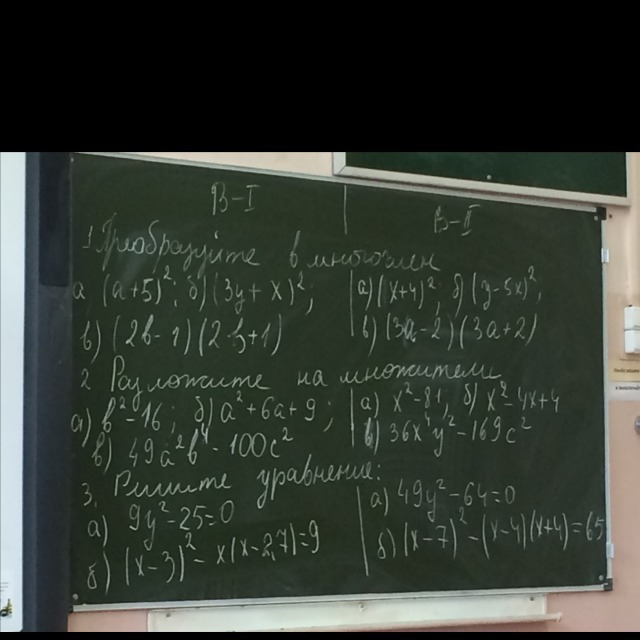 В-I В-II
1. Преобразуйте в многочлен
а (a+5)²; б) (3y+x)²; а) (x+4)²; б) (y-5x)²;
в) (2b-1)(2b+1) в) (3a-2)(3a+2)
2 Разложите на множители
а) b²-16; б) a²+6a+9; а) x²-81, б) x²-4x+4
в) 49a²b⁴-100c² в) 36x⁴y²-169c²
3. Решите уравнение:
а) 9y²-25=0 а) 49y²-64=0
б) (x-3)²-x(x-2,7)=9 б) (x-7)²-(x-4)(x+4)=65